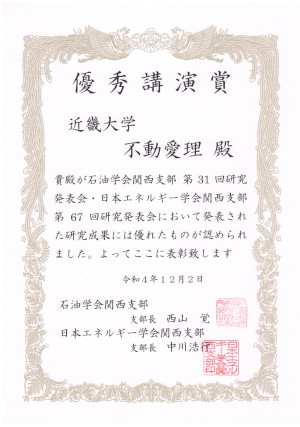 優秀講演賞
近畿大学
不動愛理 殿
貴殿が石油学会関西支部 第31回研究
発表会・日本エネルギー学会関西支部
第67回研究発表会において発表され
た研究成果には優れたものが認められ
ました。よってここに表彰致します
令和4年12月2日
石油学会関西支部
支部長 西山 覚
日本エネルギー学会関西支部
支部長 中川浩行